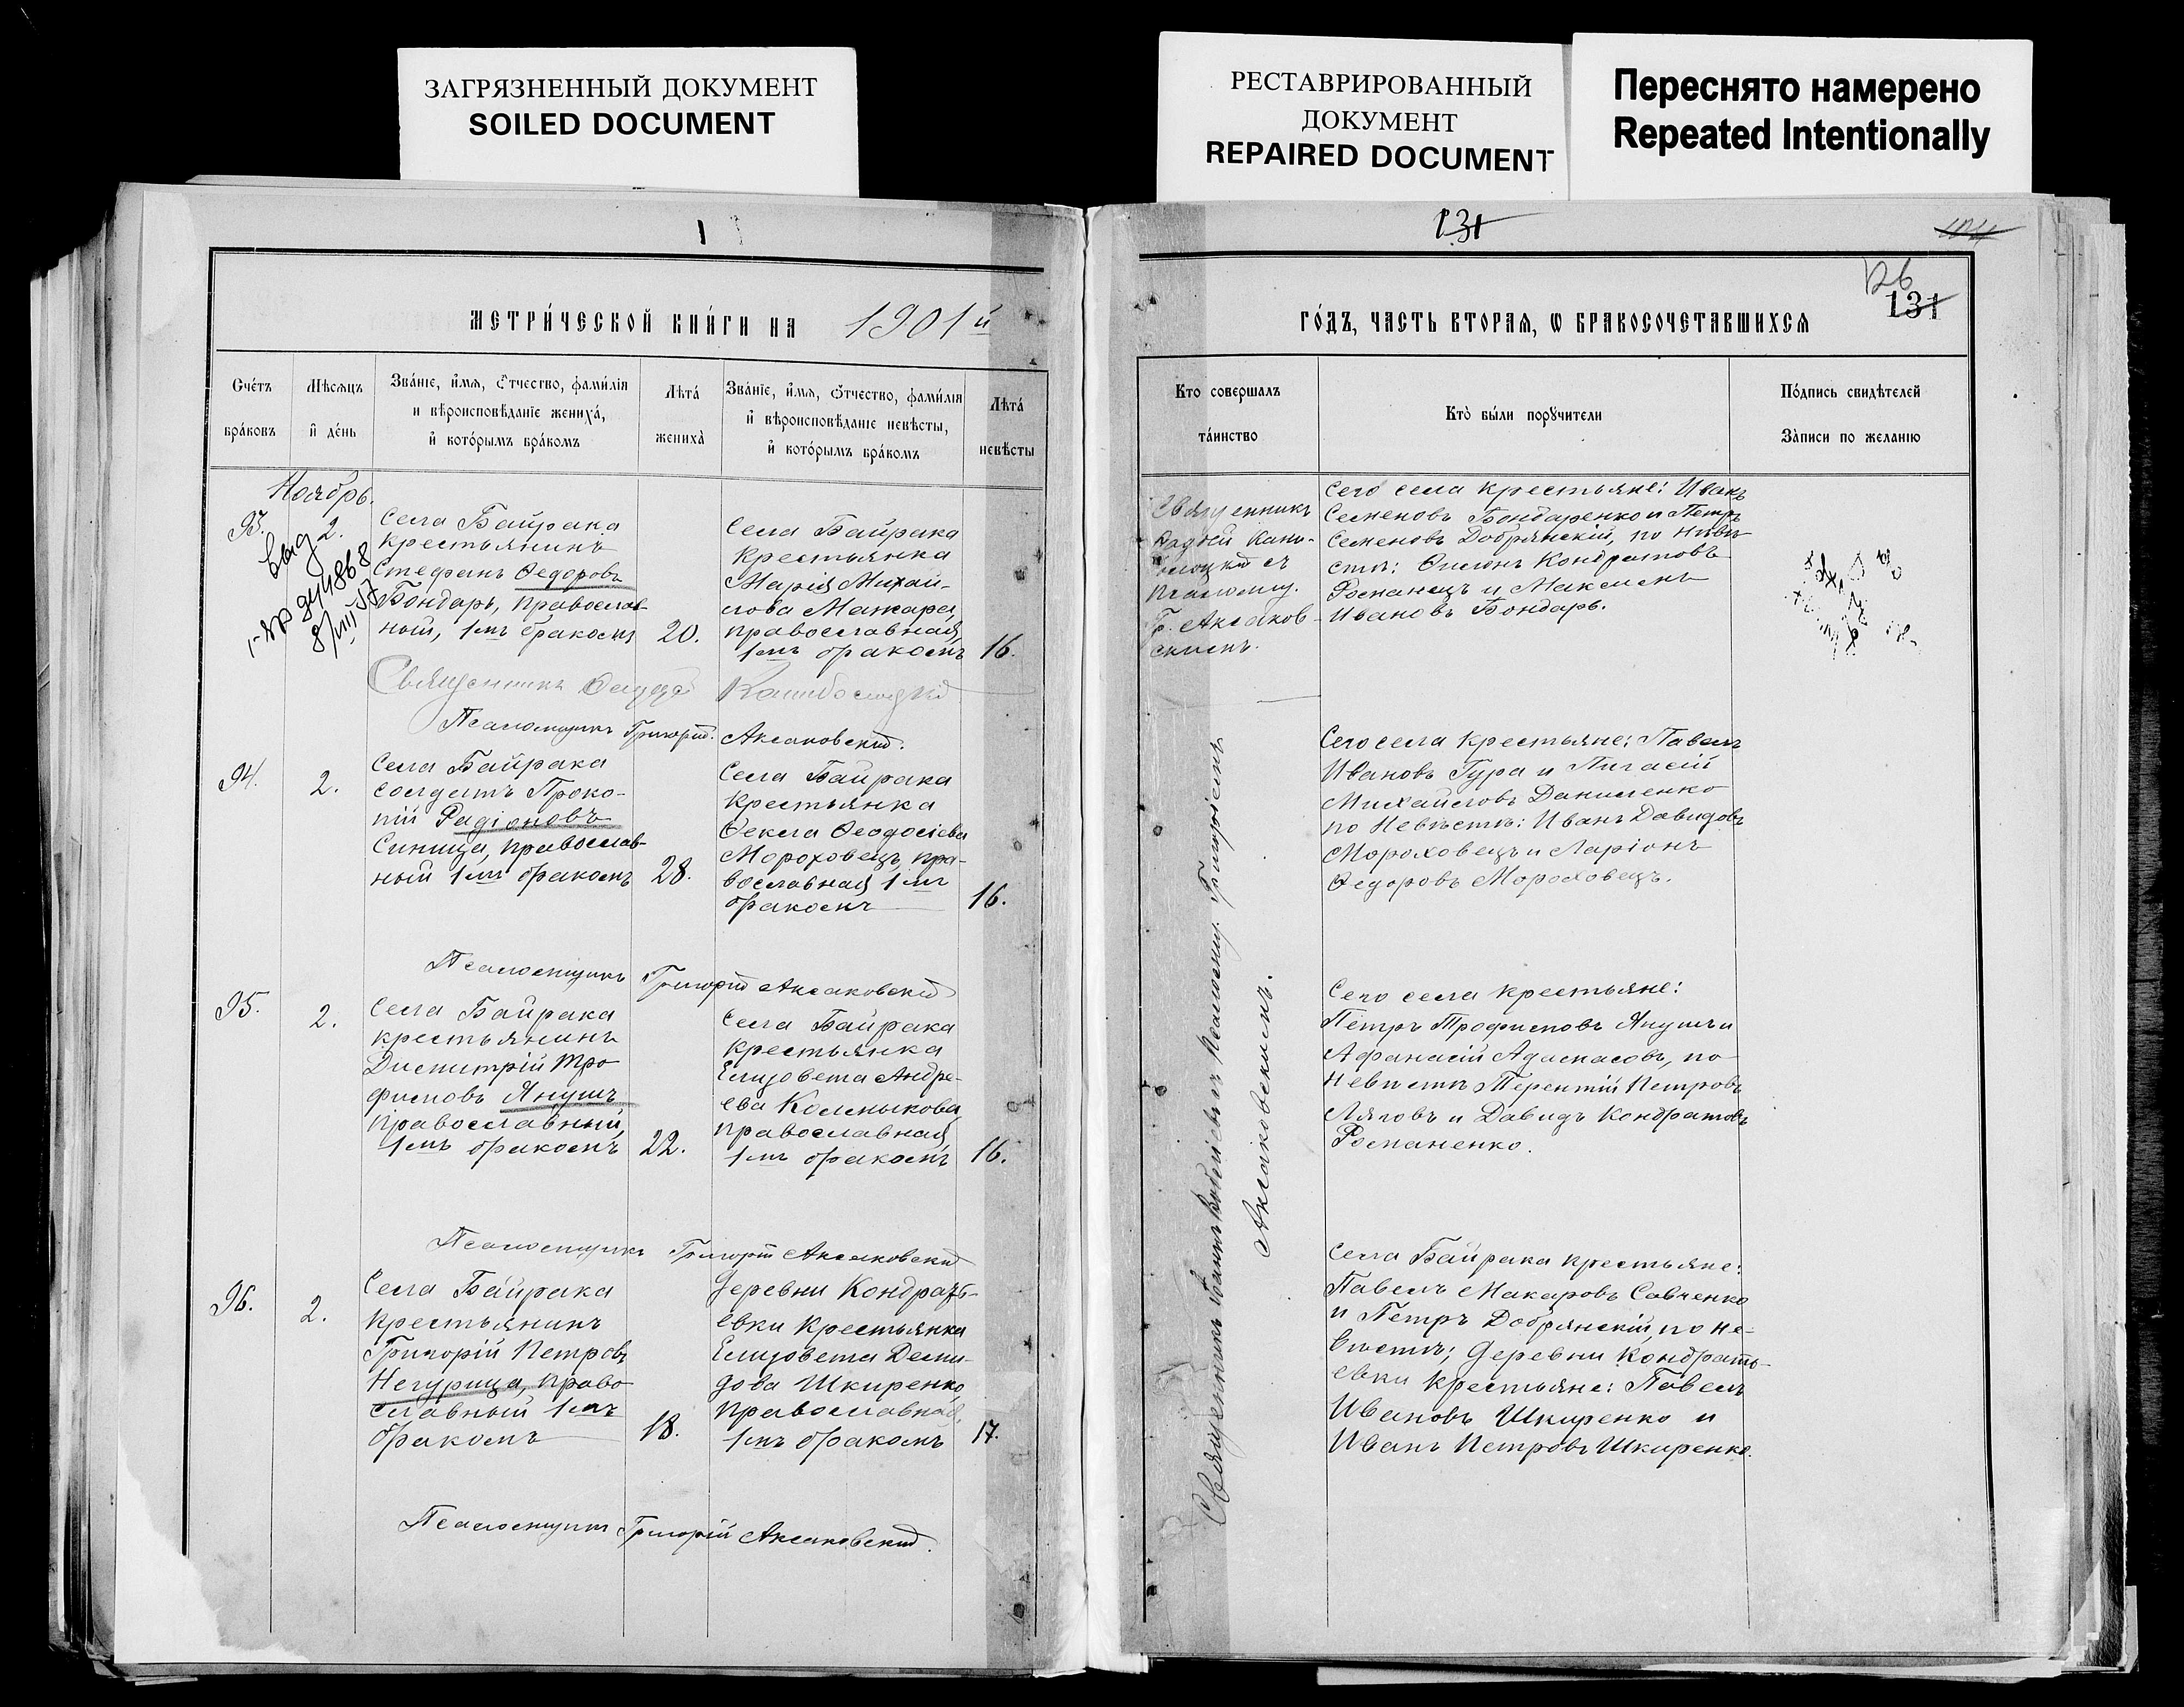 ЗАГРЯЗНЕННЫЙ ДОКУМЕНТ
SOILED DOCUMENT
РЕСТАВРИРОВАННЫЙ
ДОКУМЕНТ
REPAIRED DOCUMENT
Переснято намерено
Repeated Intentionally
1
МЕТРИ́ЧЕСКОЙ КНИ́ГИ НА 1901й
Сче́тъ
бра́ковъ
Мѣсяцъ
и де́нь
Зва́ніе, и́мя, ѻ́тчество, фами́лія
и вѣроисповѣ́даніе жениха́,
и кото́рымъ бра́комъ
Лѣта́
жениха̀
Зва́ніе, и́мя, ѻ́тчество, фами́лія
и вѣроисповѣ́даніе невѣ́сты,
и кото́рымъ бра́комъ
Лѣта́
невѣ́сты
Ноябрь.
93.
2.
Села Байрака
крестьянинъ
Стефанъ Ѳедоровъ
Бондарь, православ-
ный, 1мъ бракомъ
20.
Села Байрака
крестьянка
Марія Михай-
лова Мажара,
православная
1мъ бракомъ
16.
Священникъ
Псаломщикъ Григорій Аксаковскій.
94.
2.
Села Байрака
солдатъ Проко-
пій Радіоновъ
Синица, православ-
ный 1мъ бракомъ
28.
Села Байрака
крестьянка
Ѳекла Ѳеодосіева
Мороховецъ, пра-
вославная 1мъ
бракомъ
16.
Псаломщикъ Григорій Аксаковскій
95.
2.
Села Байрака
крестьянинъ
Димитрій Тро-
фимовъ Янушъ
православный,
1мъ бракомъ
22.
Села Байрака
крестьянка
Елизовета Андре-
ева Колмыкова,
православная,
1мъ бракомъ
16.
Псаломщикъ Григорій Аксаковскій
96.
2.
Села Байрака
крестьянинъ
Григорій Петровъ
Нечурица, право-
славный 1мъ
бракомъ
18.
Деревни Кондрать-
евки крестьянка
Елизовета Деми-
дова Шкиренко,
православная,
1мъ бракомъ
17.
Псаломщикъ Григорій Аксаковскій.
131
126
131
ГО́ДЪ, ЧАСТЬ ВТОРАЯ, Ѡ БРАКОСОЧЕТАВШИХСЯ
Кто совершалъ
та́инство
Кто̀ бы́ли порꙋчители
По́дпись свидѣ́телей
За́писи по жела́нію
Священникъ
съ
псаломщ.
Г. Аксаков-
скимъ.
Сего села крестьяне: Иванъ
Семеновъ Бондаренко и Петръ
Семеновъ Добрянскій, по невѣ-
стѣ: Симонъ Кондратовъ
Романецъ и Максимъ
Ивановъ Бондарь.
Сего села крестьяне: Павелъ
Ивановъ Гура и
Михайловъ Даниленко
по невѣстѣ: Иванъ Давидовъ
Мороховецъ и Ларіонъ
Ѳедоровъ Мороховецъ.
Сего села крестьяне:
Петръ Трофимовъ Янушъ и
Афанасій Адамасовъ, по
невѣстѣ Терентій Петровъ
Ляговъ и Давидъ Кондратовъ
Романенко.
Села Байрака крестьяне:
Павелъ Макаровъ Савченко
и Петръ Добрянскій, по не-
вѣстѣ; деревни Кондрать-
евки крестьяне: Павелъ
Ивановъ Шкиренко и
Иванъ Петровъ Шкиренко.
Священникъ псаломщ. Григоріемъ
Аксаковскимъ.